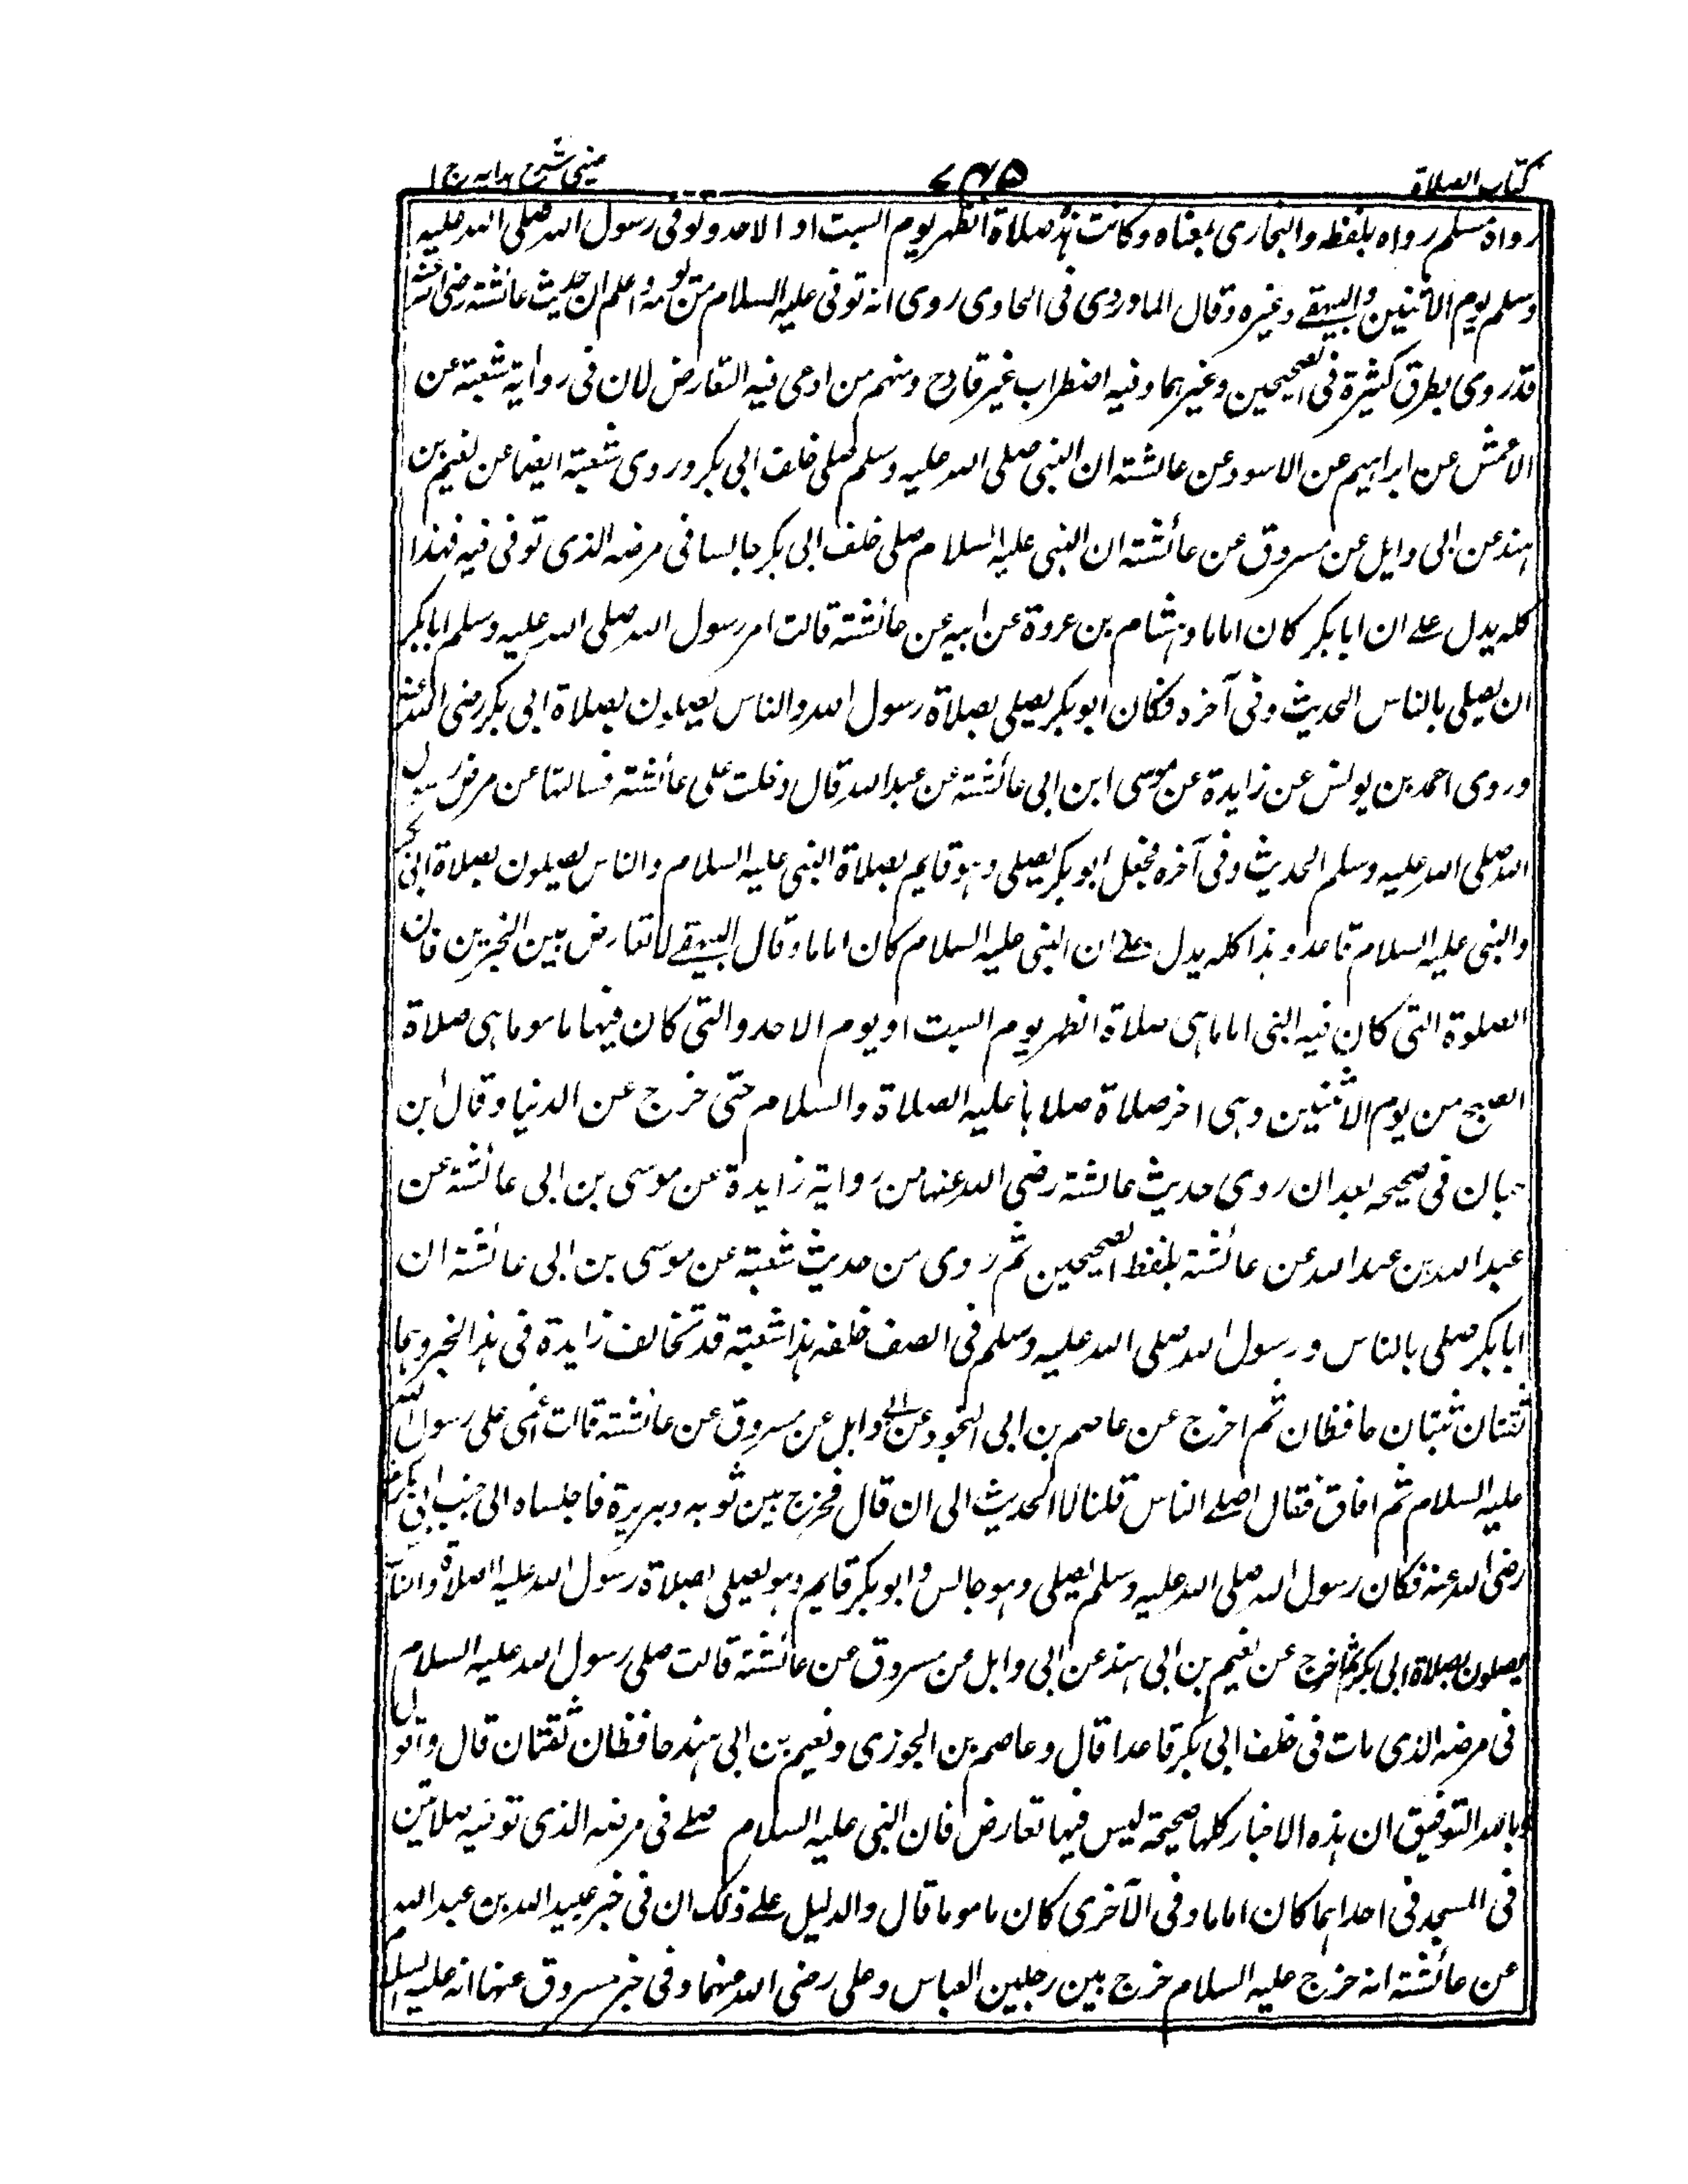 كتاب الصلاة
٧٤٥
عینی شرح ہدایہ ج ۱
رواه مسلم رواه بلفظه والبخاری بمعناه وكانت هذه صلاة الظهر يوم السبت او الاحد وتوفی رسول الله صلی الله علیه
وسلم یوم الاثنین والبیهقے وغیره وقال الماوردی فی الحاوی روی انه توفی علیه السلام من یومه واعلم ان حدیث عائشة رضی الله عنها
قد روی بطرق كثیرة فی الصحیحین وغیرهما وفیه اضطراب غیر قادح ومنهم من ادعی فیه التعارض لان فی روایة شعبة عن
الاعمش عن ابراهیم عن الاسود عن عائشة ان النبی صلی الله علیه وسلم صلی خلف ابی بكر وروی شعبة ایضا عن نعیم بن
هند عن ابی وایل عن مسروق عن عائشة ان النبی علیه السلام صلی خلف ابی بكر جالسا فی مرضه الذی توفی فیه فهذا
كله یدل علے ان ابا بكر كان اماما وهشام بن عروة عن ابیه عن عائشة قالت امر رسول الله صلی الله علیه وسلم ابا بكر
ان یصلی بالناس الحدیث وفی آخره فكان ابو بكر یصلی بصلاة رسول الله والناس یصلون بصلاة ابی بكر رضی الله عنه
وروی احمد بن یونس عن زایدة عن موسی ابن ابی عائشة عن عبد الله قال دخلت علی عائشة فسالتها عن مرض رسول
الله صلی الله علیه وسلم الحدیث وفی آخره فجعل ابو بكر یصلی وهو قایم بصلاة النبی علیه السلام والناس یصلون بصلاة ابی بكر
والنبی علیه السلام قاعد وهذا كله یدل علے ان النبی علیه السلام كان اماما وقال البیهقے لا تعارض بین الخبرین فان
الصلوة التی كان فیه النبی اماما هی صلاة الظهر یوم السبت او یوم الاحد والتی كان فیها ماموما هی صلاة
الصبح من یوم الاثنین وهی اخر صلاة صلاها علیه الصلاة والسلام حتی خرج عن الدنیا وقال ابن
حبان فی صحیحه بعد ان روی حدیث عائشة رضی الله عنها من روایة زایدة عن موسی بن ابی عائشة عن
عبد الله بن عبد الله عن عائشة بلفظ الصحیحین ثم روی من حدیث شعبة عن موسی بن ابی عائشة ان
ابا بكر صلی بالناس ورسول الله صلی الله علیه وسلم فی الصف خلفه هذا شعبة قد تخالف زایدة فی هذا الخبر وهما
ثقتان ثبتان حافظان ثم اخرج عن عاصم بن ابی النجود عن ابی وایل عن مسروق عن عائشة قالت اغمی علی رسول الله
علیه السلام ثم افاق فقال اصلے الناس قلنا لا الحدیث الی ان قال فخرج بین ثوبه وبریرة فاجلساه الی جنب ابی بكر
رضی الله عنه فكان رسول الله صلی الله علیه وسلم یصلی وهو جالس وابو بكر قایم وهو یصلی بصلاة رسول الله علیه الصلاة والناس
یصلون بصلاة ابی بكر ثم اخرج عن نعیم بن ابی هند عن ابی وایل عن مسروق عن عائشة قالت صلی رسول الله علیه السلام
فی مرضه الذی مات فی خلف ابی بكر قاعدا قال وعاصم بن الجوزی ونعیم بن ابی هند حافظان ثقتان قال واقول
وبالله التوفیق ان هذه الاخبار كلها صحیحة لیس فیها تعارض فان النبی علیه السلام صلے فی مرضه الذی توفیه صلاتین
فی المسجد فی احداهما كان اماما وفی الآخری كان ماموما قال والدلیل علے ذلك ان فی خبر عبید الله بن عبد الله
عن عائشة انه خرج علیه السلام خرج بین رجلین العباس وعلی رضی الله عنهما وفی خبر مسروق عنها انه علیه السلام